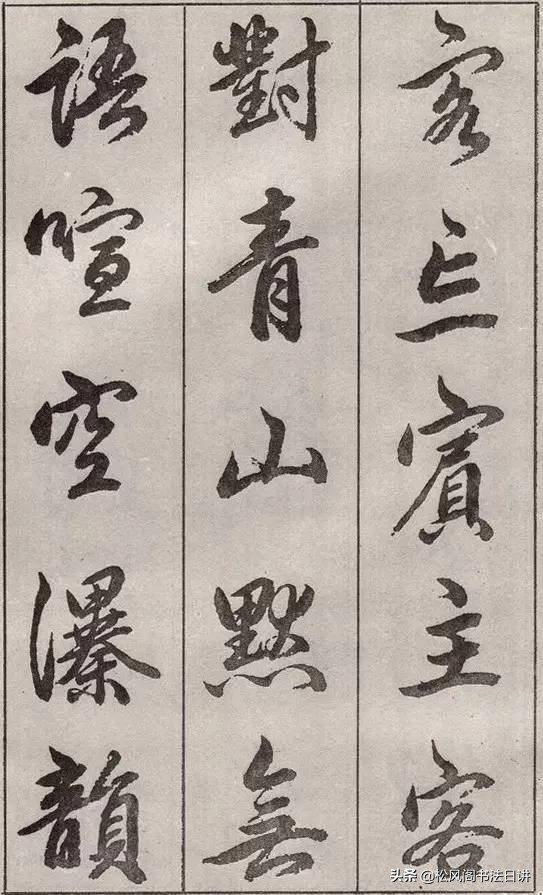 客忘賓主客
對青山默無
語喧空瀑韻
头条 @松风阁书法日讲